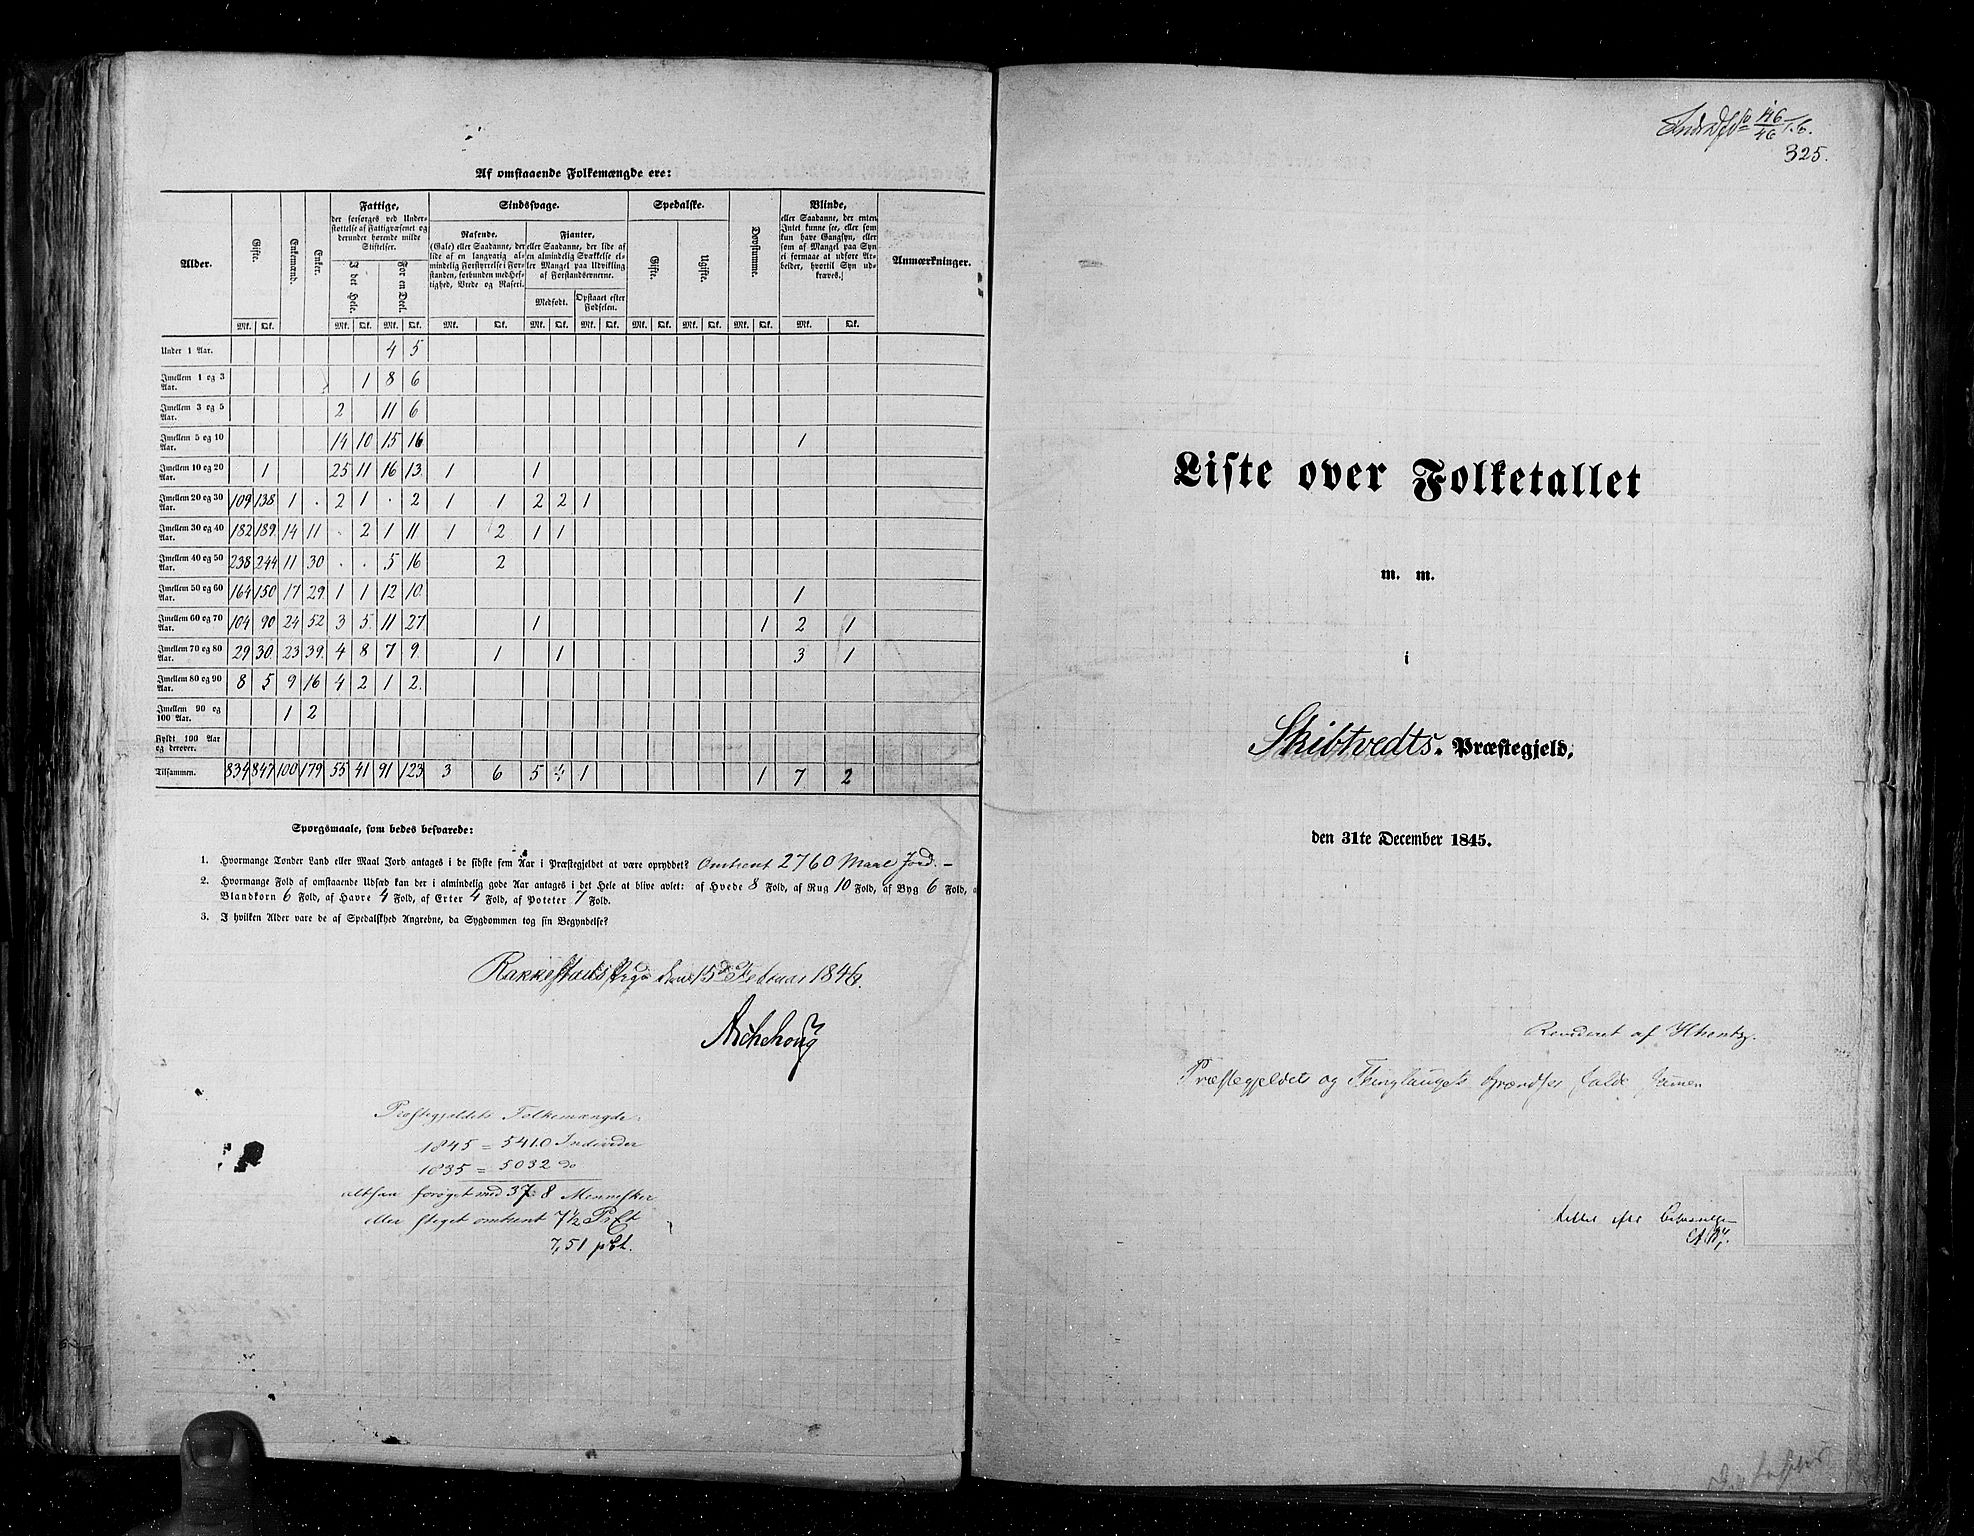 Af omstaaende Folkemængde ere:
Alder. | Gifte. | Enkemænd. | Enker. | Fattige, der forsørges ved Understøttelse af Fattigvæsenet og derunder hørende milde Stiftelser. | Sindssvage. | Spedalske. | Døvstumme. | Blinde, eller Saadanne, der enten Intet kunne see, eller som kun have Gangsyn, eller som af Mangel paa Syn ei formaae at udføre Arbeider, hvortil Syn udkræves.] | Anmærkninger.
I det Hele. | For en Deel. | Rasende. (Gale) eller Saadanne, der lide af en langvarig almindelig Forstyrrelse i Forstanden, forbunden med Heftighed, Vrede og Raseri. | Fianter, eller Saadanne, der lide af en almindelig Svækkelse eller Mangel paa Udvikling af Forstandsevnerne. | Gifte. | Ugifte.
Medfødt. | Opstaaet efter Fødselen.
Mk. | Qk. | Mk. | Qk. | Mk. | Qk. | Mk. | Qk. | Mk. | Qk. | Mk. | Qk. | Mk. | Qk. | Mk. | Qk. | Mk. | Qk. | Mk. | Qk.
Under 1 Aar. 4 5
Imellem 1 og 3 Aar. 1 8 6
Imellem 3 og 5 Aar. 2 11 6
Imellem 5 og 10 Aar. 14 10 15 16 1
Imellem 10 og 20 Aar. 1 25 11 16 13. 1 1
Imellem 20 og 30 Aar. 109 138 1 . 2 1 . 2 1 1 2 2 1
Imellem 30 og 40 Aar. 182 189. 14 11 . 2 1 11. 1 2 1 1
Imellem 40 og 50 Aar. 238 244 11 30 . . 5 16 2
Imellem 50 og 60 Aar. 164 150 17 29 1 1 12 10. 1
Imellem 60 og 70 Aar. 104 90 24 52 3 5 11 27 1 1 2 1
Imellem 70 og 80 Aar. 29 30. 23 39. 4 8 7 9. 1 1 3 1
Imellem 80 og 90 Aar. 8 5 9 16 4 2 1 2.
Imellem 90 og 100 Aar. 1 2
Fyldt 100 Aar og derover.
Tilsammen. 834 847 100 179 55 41 91 123 3 6 5 4 1 1 7 2
Spørgsmaale, som bedes besvarede:
1. Hvormange Tønder Land eller Maal Jord antages i de sidste fem Aar i Præstegjeldet at være opryddet? Omtrent 2760 Maal Jord. –
2. Hvormange Fold af omstaaende Udsæd kan der i almindelig gode Aar antages i det Hele at blive avlet: af Hvede 8 Fold, af Rug 10 Fold, af Byg 6 Fold, a
Blandkorn 6 Fold, af Havre 4 Fold, af Erter 4 Fold, af Poteter 7 Fold.
3. I hvilken Alder vare de af Spedalskhed Angrebne, da Sygdommen tog sin Begyndelse?
Rakkestads Prgd den 15de Februar 1846.
Aschehoug
Præstegjeldets Folkemængde:
1845 = 5410 Individer
1835 = 5032 do
altsaa forøget med 378 Mennesker
eller steget omtrent 7½ PrCt
7,51 pCt.
146/46
325.
Liste over Folketallet
m. m.
i
Skibtvedts Præstegjeld,
den 31te December 1845.
Revideret af
Præstegjeldet og Thinglaugets Grændser falde sammen
Rettet efter